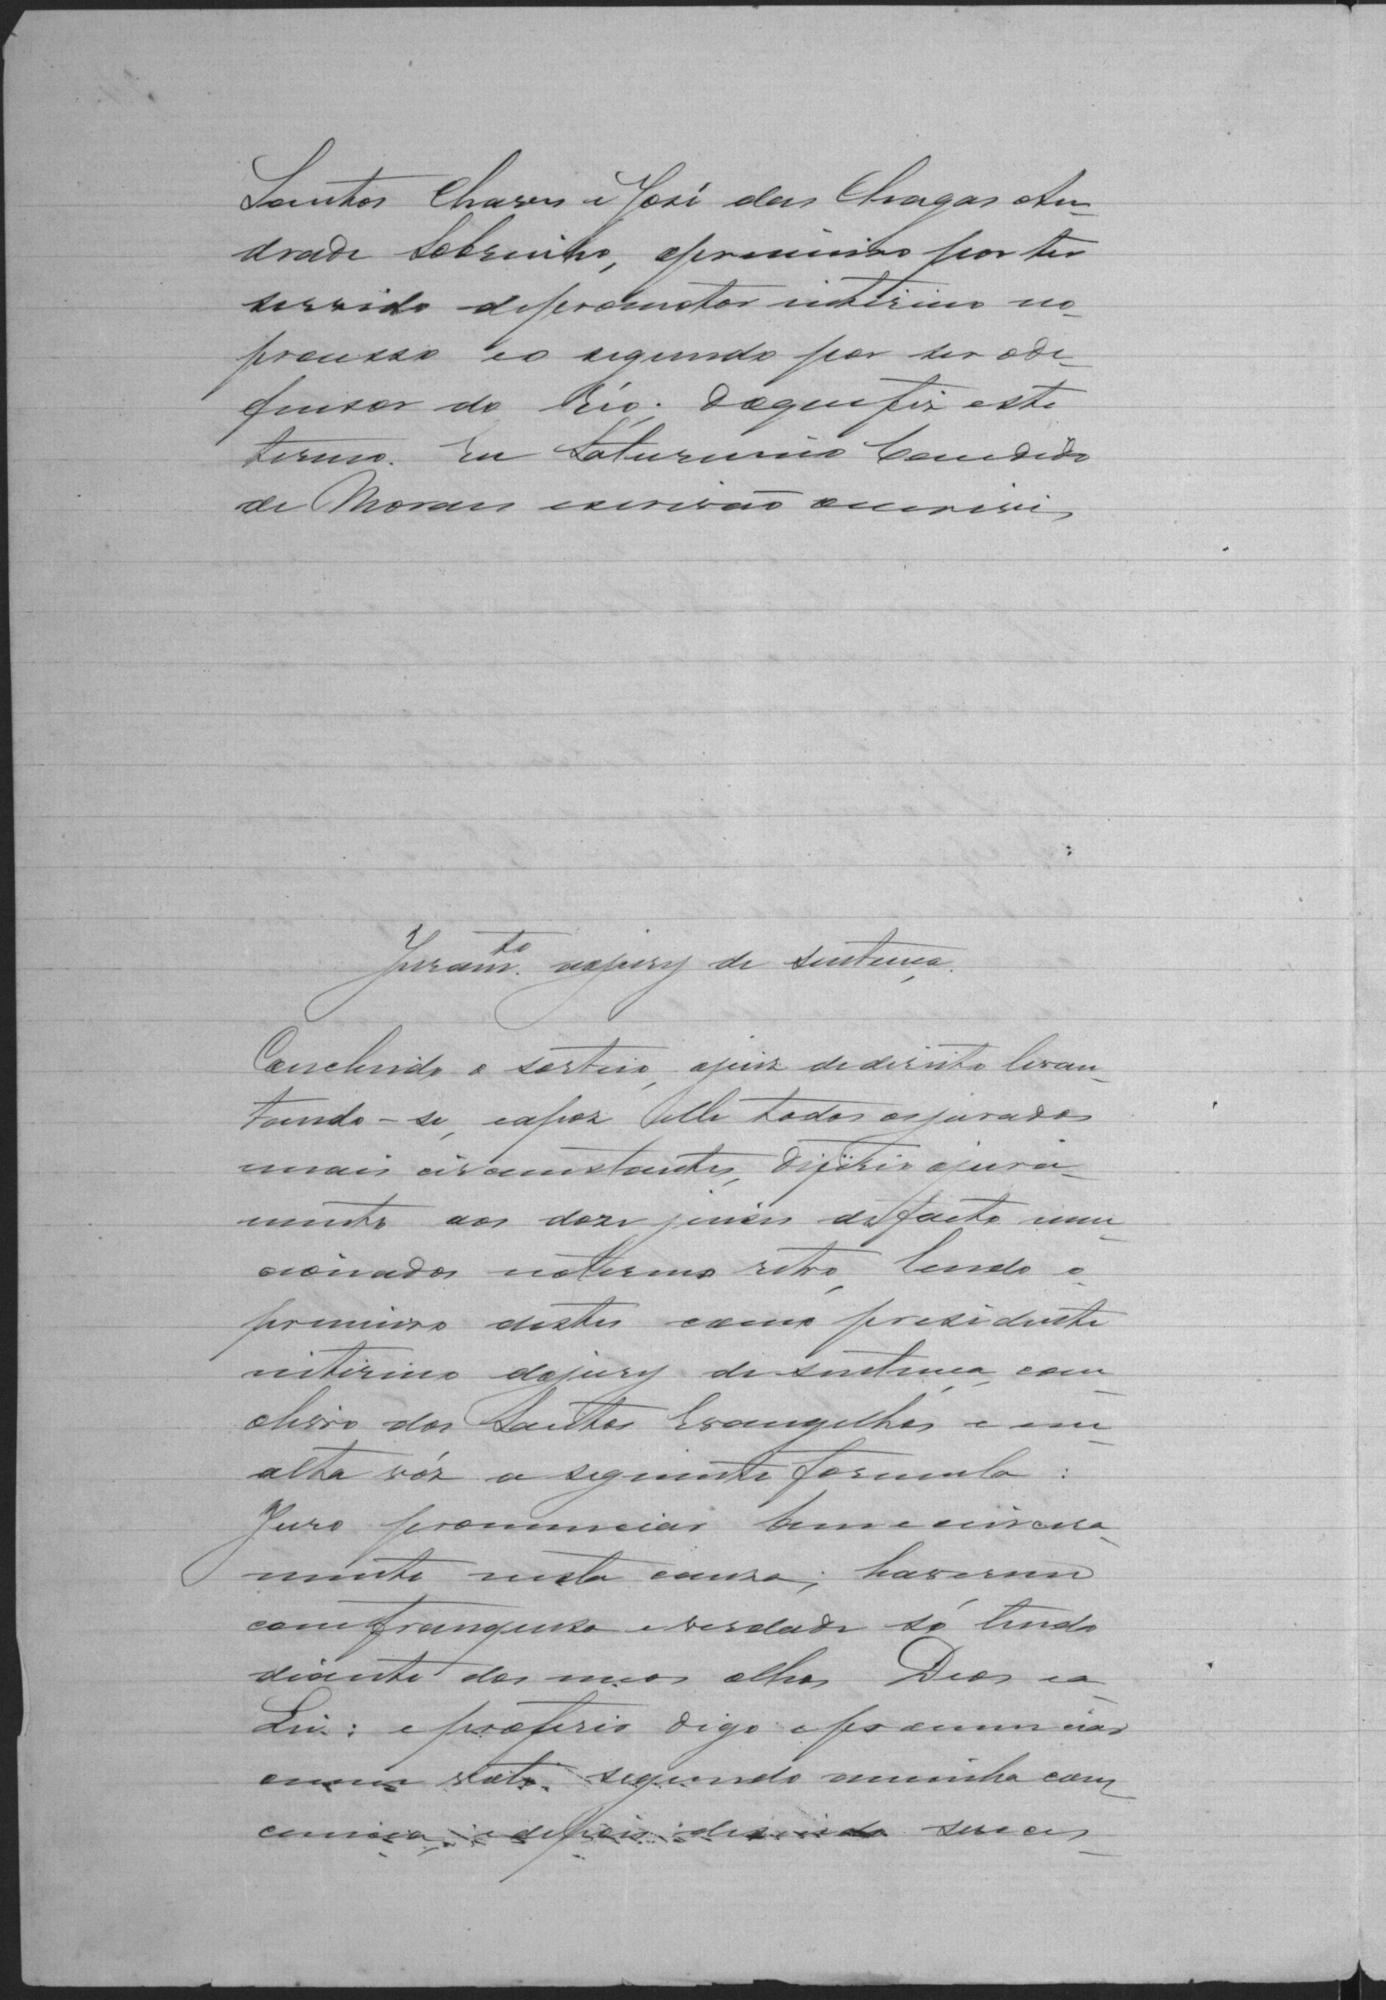 Santos Chaves e José das Chagas An-
drade Sobrinho, oprimeiro por ter
servido depromotor interino no
processo eo segundo por ser ode-
fensor do Réo. Doquefiz este
termo. Eu Saturnino Candido
de Moraes escrivão oescrevi,
Juram.to aojury de sentença.
Concluido o sorteio, ojuiz dedireito levan-
tando-se, eapoz elle todos osjurados
emais circumstantes, difirio ojura-
mento aos doze juises defacto men-
cionados notermo retro, lendo o
primeiro destes como presidente
interino dojury desentença, com
olivro dos Santos Evangelhos e em
alta vóz a seguinte formula:
Juro pronunciar bem esincera-
mente nesta causa; haverme
comfranqueza e verdade só tendo
diante dos meos olhos Deos ea
Lei: e proferir digo epronunciar
omeu voto segundo aminha con
ciencia, edepois desendo